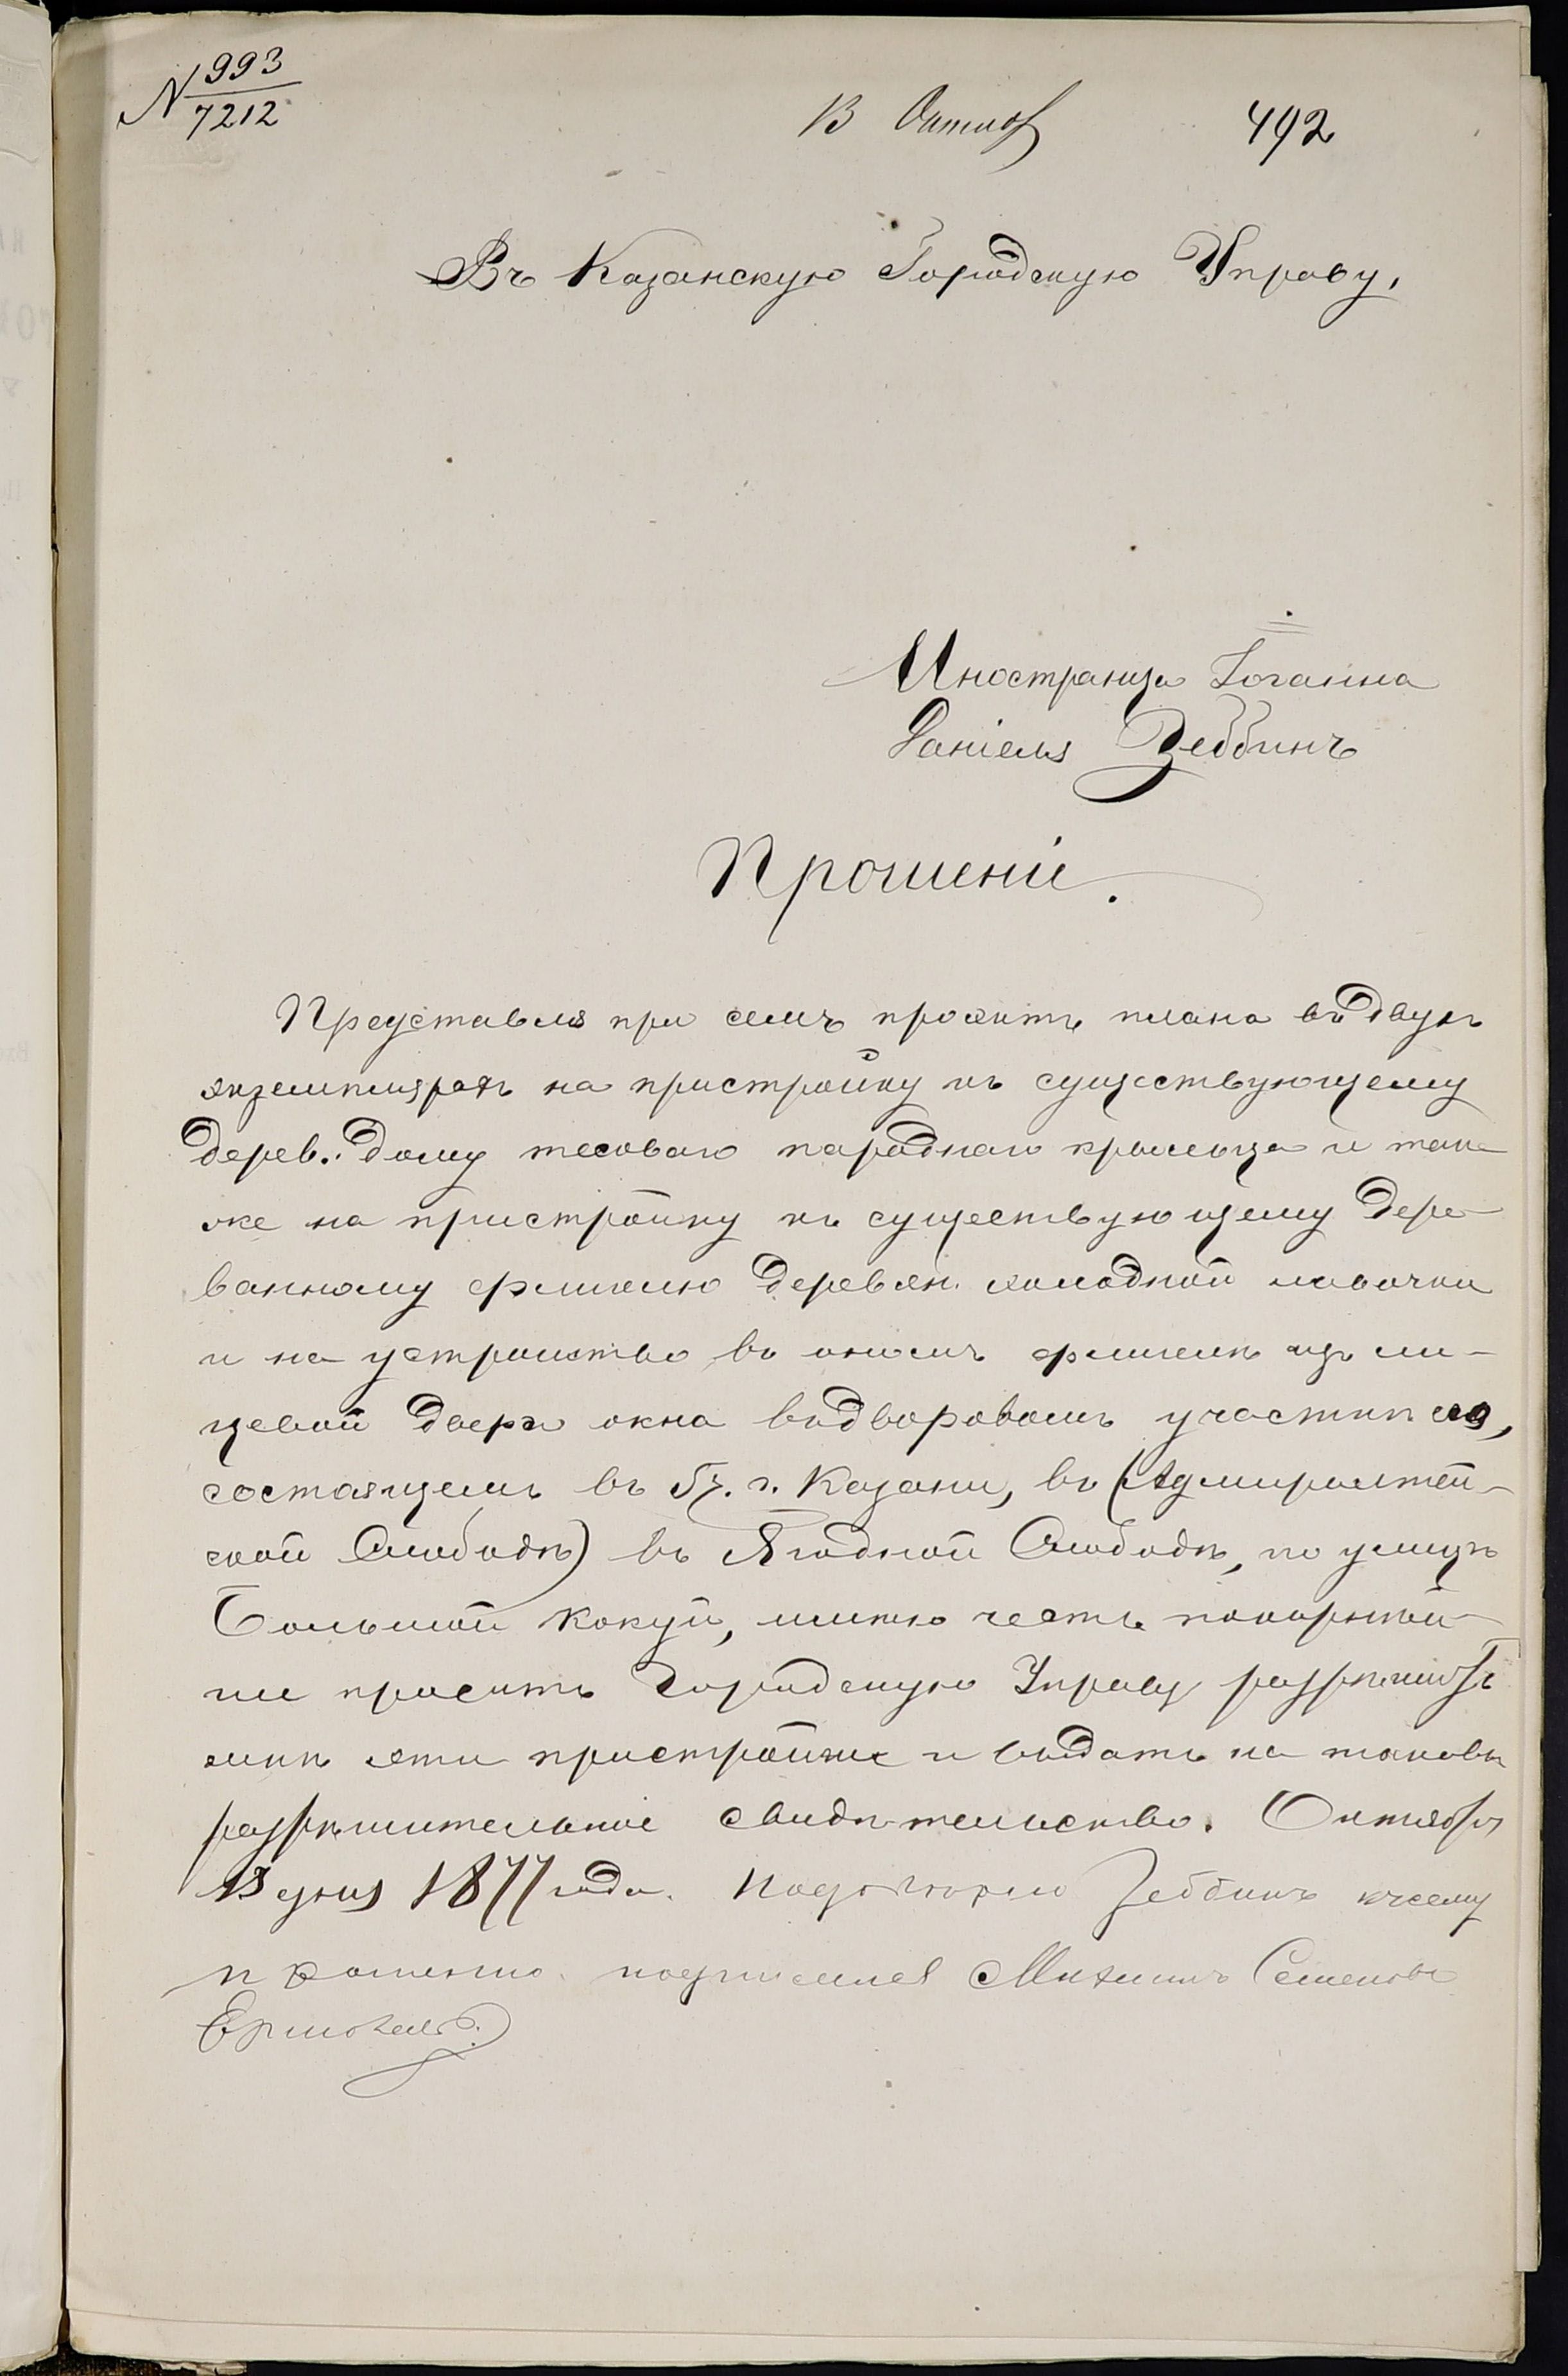 N 993
7212
13 Октяб
492
Въ Казанскую Городскую Управу,
Иностранца Іоганна
Даніеля Зеббинъ
Прошеніе.
Представляя при семъ проэктъ плана въ двухъ
экземплярахъ на пристройку къ существующему
дерев. дому тесоваго параднаго крыльца и так
же на пристройку къ существующему дере
ванному флигелю деревян. холодной лавочки
и на устройство во ономъ флигелѣ изъ ли-
цевой двери окна въ дворовомъ участкѣ
состоящемъ въ 5 ч. г. Казани, въ (Адмиралтей-
ской Слободѣ) въ Ягодной Слободѣ, по улицѣ
Большой Кокуй, имѣю честь покорнѣй-
ше просить Городскую Управу разрѣшить
мнѣ эти пристройки и выдать на таковы
разрѣшительное свидѣтельство. Октября
13 дня 1877 года. Зеббинъ къ сему
прошенію подписался Михаилъ Семеновъ
Ермолаевъ.